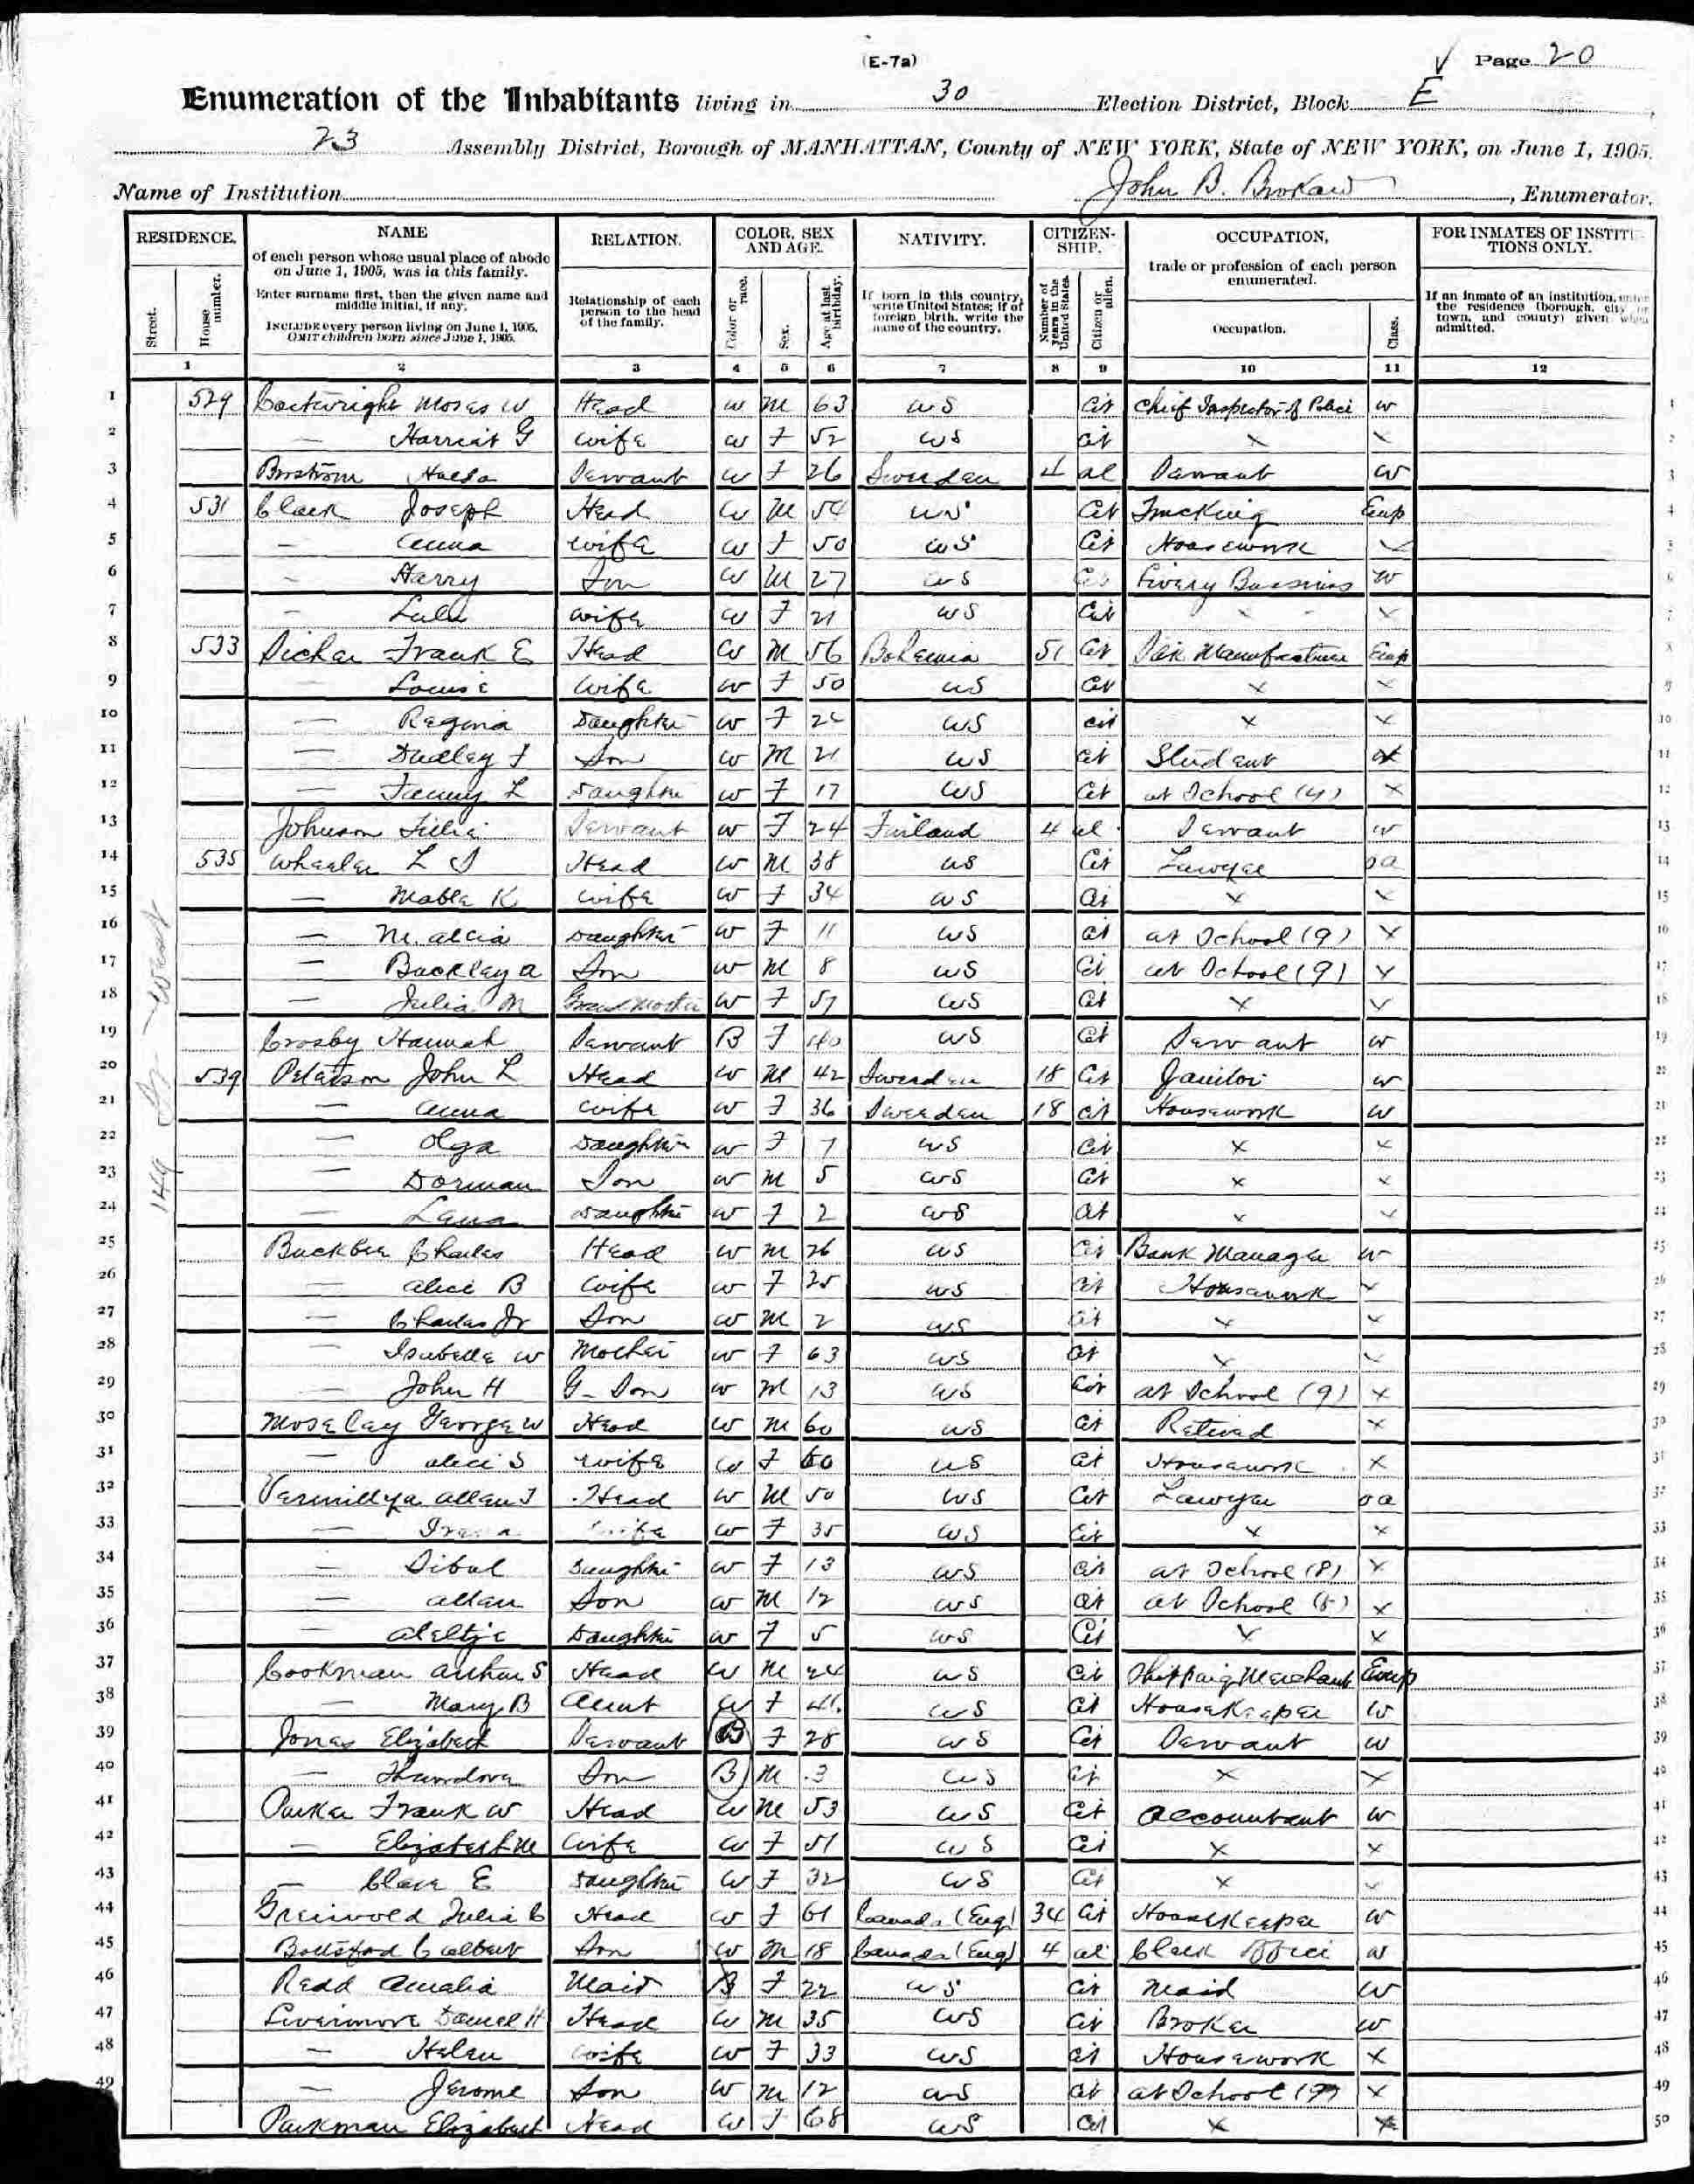 (E-7a)
Page 20
Enumeration of the Inhabitants living in 30 Election District, Block E
23 Assembly District, Borough of MANHATTAN, County of NEW YORK, State of NEW YORK, on June 1, 1905.
Name of Institution John B. Brokaw, Enumerator.
RESIDENCE. NAME RELATION. COLOR, SEX AND AGE. NATIVITY. CITIZEN-SHIP. OCCUPATION, FOR INMATES OF INSTITUTIONS ONLY.
of each person whose usual place of abode on June 1, 1905, was in this family.
trade or profession of each person enumerated.
Street. House number.
Enter surname first, then the given name and middle initial, if any.
INCLUDE every person living on June 1, 1905.
OMIT children born since June 1, 1905.
Relationship of each person to the head of the family.
Color or race. Sex. Age at last birthday.
If born in this country, write United States; if of foreign birth, write the name of the country.
Number of years in the United States. Citizen or alien.
Occupation. Class.
If an inmate of an institution, enter the residence (borough, city or town, and county) given when admitted.
1 2 3 4 5 6 7 8 9 10 11 12
1 529 Moses W Head W M 63 US Cit Chief Inspector of Police W
2 — Harriet G Wife W F 52 US Cit x x
3 Hulda Servant W F 26 Sweden 4 al Servant W
4 531 Clark Joseph Head W M 54 US Cit Trucking Emp
5 — Anna Wife W F 50 US Cit Housework
6 — Harry Son W M 27 US Livery Bussiness W
7 — Lulu Wife W F 21 US Cit x x
8 533 Frank E Head W M 56 Bohemia 51 Cit Manufacturer Emp
9 — Louise Wife W F 50 US Cit x x
10 — Regina Daughter W F US Cit x x
11 — Dudley F Son W M 21 US Cit Student x
12 — Fanny L Daughter W F 17 US Cit at School (4) x
13 Johnson Servant W F 24 Finland 4 al Servant W
14 535 Wheeler L S Head W M 38 US Cit Lawyer oa
15 — Mable K Wife W F 34 US Cit x x
16 — M. Daughter W F 11 US Cit at School (9) x
17 — Buckley A Son W M 8 US Cit at School (9) x
18 — Julia M Grandmother W F 57 US Cit x x
19 Crosby Hannah Servant B F 40 US Cit Servant W
20 539 Peterson John L Head W M 42 Sweden 18 Cit Janitor W
21 — Anna Wife W F 36 Sweden 18 Cit Housework W
22 — Olga Daughter W F 7 US Cit x x
23 — Dorman Son W M 5 US Cit x x
24 — Daughter W F 2 US Cit x x
25 Buckbee Charles Head W M 26 US Cit Bank Manager W
26 — Alice B Wife W F 25 US Cit Housework x
27 — Charles Jr Son W M 2 US Cit x x
28 — Isabelle W Mother W F 63 US Cit x x
29 — John H G-Son W M 13 US Cit at School (9) x
30 Moseley George W Head W M 60 US Cit Retired x
31 — Alice S Wife W F 60 US Cit Housework x
32 Vermillya Allen J Head W M 50 US Cit Lawyer oa
33 — Wife W F 35 US Cit x x
34 — Sibul Daughter W F 13 US Cit at School (8) x
35 — Allan Son W M 12 US Cit at School (8) x
36 — Aleltje Daughter W F 5 US Cit x x
37 Cookman Arthur S Head W M 24 US Cit Shipping Merchant Emp
38 — Mary B Aunt W F 41 US Cit Housekeeper W
39 Jones Elizabeth Servant B F 28 US Cit Servant W
40 — Son B M 3 US Cit x x
41 Parker Frank W Head W M 53 US Cit Accountant W
42 — Elizabeth M Wife W F 51 US Cit x x
43 — Clara E Daughter W F 32 US Cit x x
44 Greiswold Julia C Head W F 61 Canada (Eng) 34 Cit Housekeeper W
45 Bottsford C Albert Son W M 18 Canada (Eng) 4 al Clerk Office W
46 Read Amalia Maid B F 22 US Cit Maid W
47 Livermore Daniel H Head W M 35 US Cit Broker W
48 — Helen Wife W F 33 US Cit Housework x
49 — Jerome Son W M 12 US Cit at School (9) x
50 Parkman Elizabeth Head W F 68 US Cit x x
149 St - West